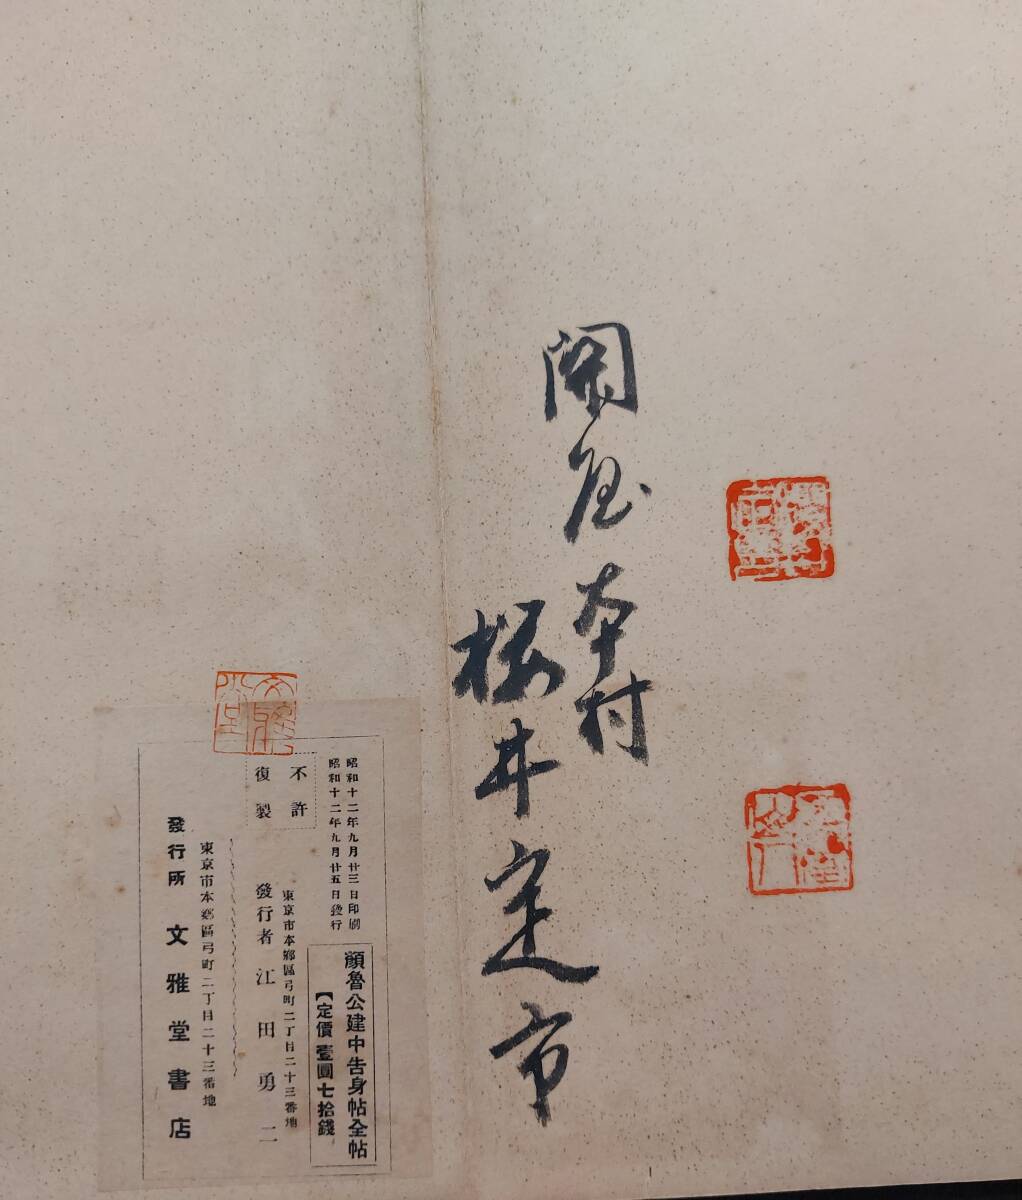 本村
桜井定市
昭和十二年九月廿三日印刷
昭和十二年九月廿五日發行
顏魯公建中告身帖全帖
【定價壹圓七拾錢】
不許
復製
東京市本鄕區弓町二丁目二十三番地
發行者 江田勇二
東京市本鄕區弓町二丁目二十三番地
發行所 文雅堂書店
文雅堂